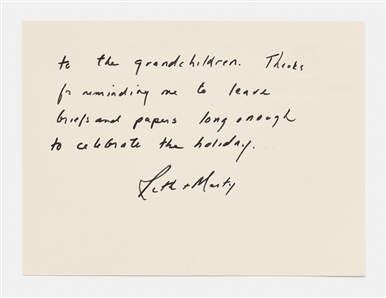 to the grandchildren. Thanks
for reminding me to leave
briefs and papers long enough
to celebrate the holiday.
Ruth + Marty